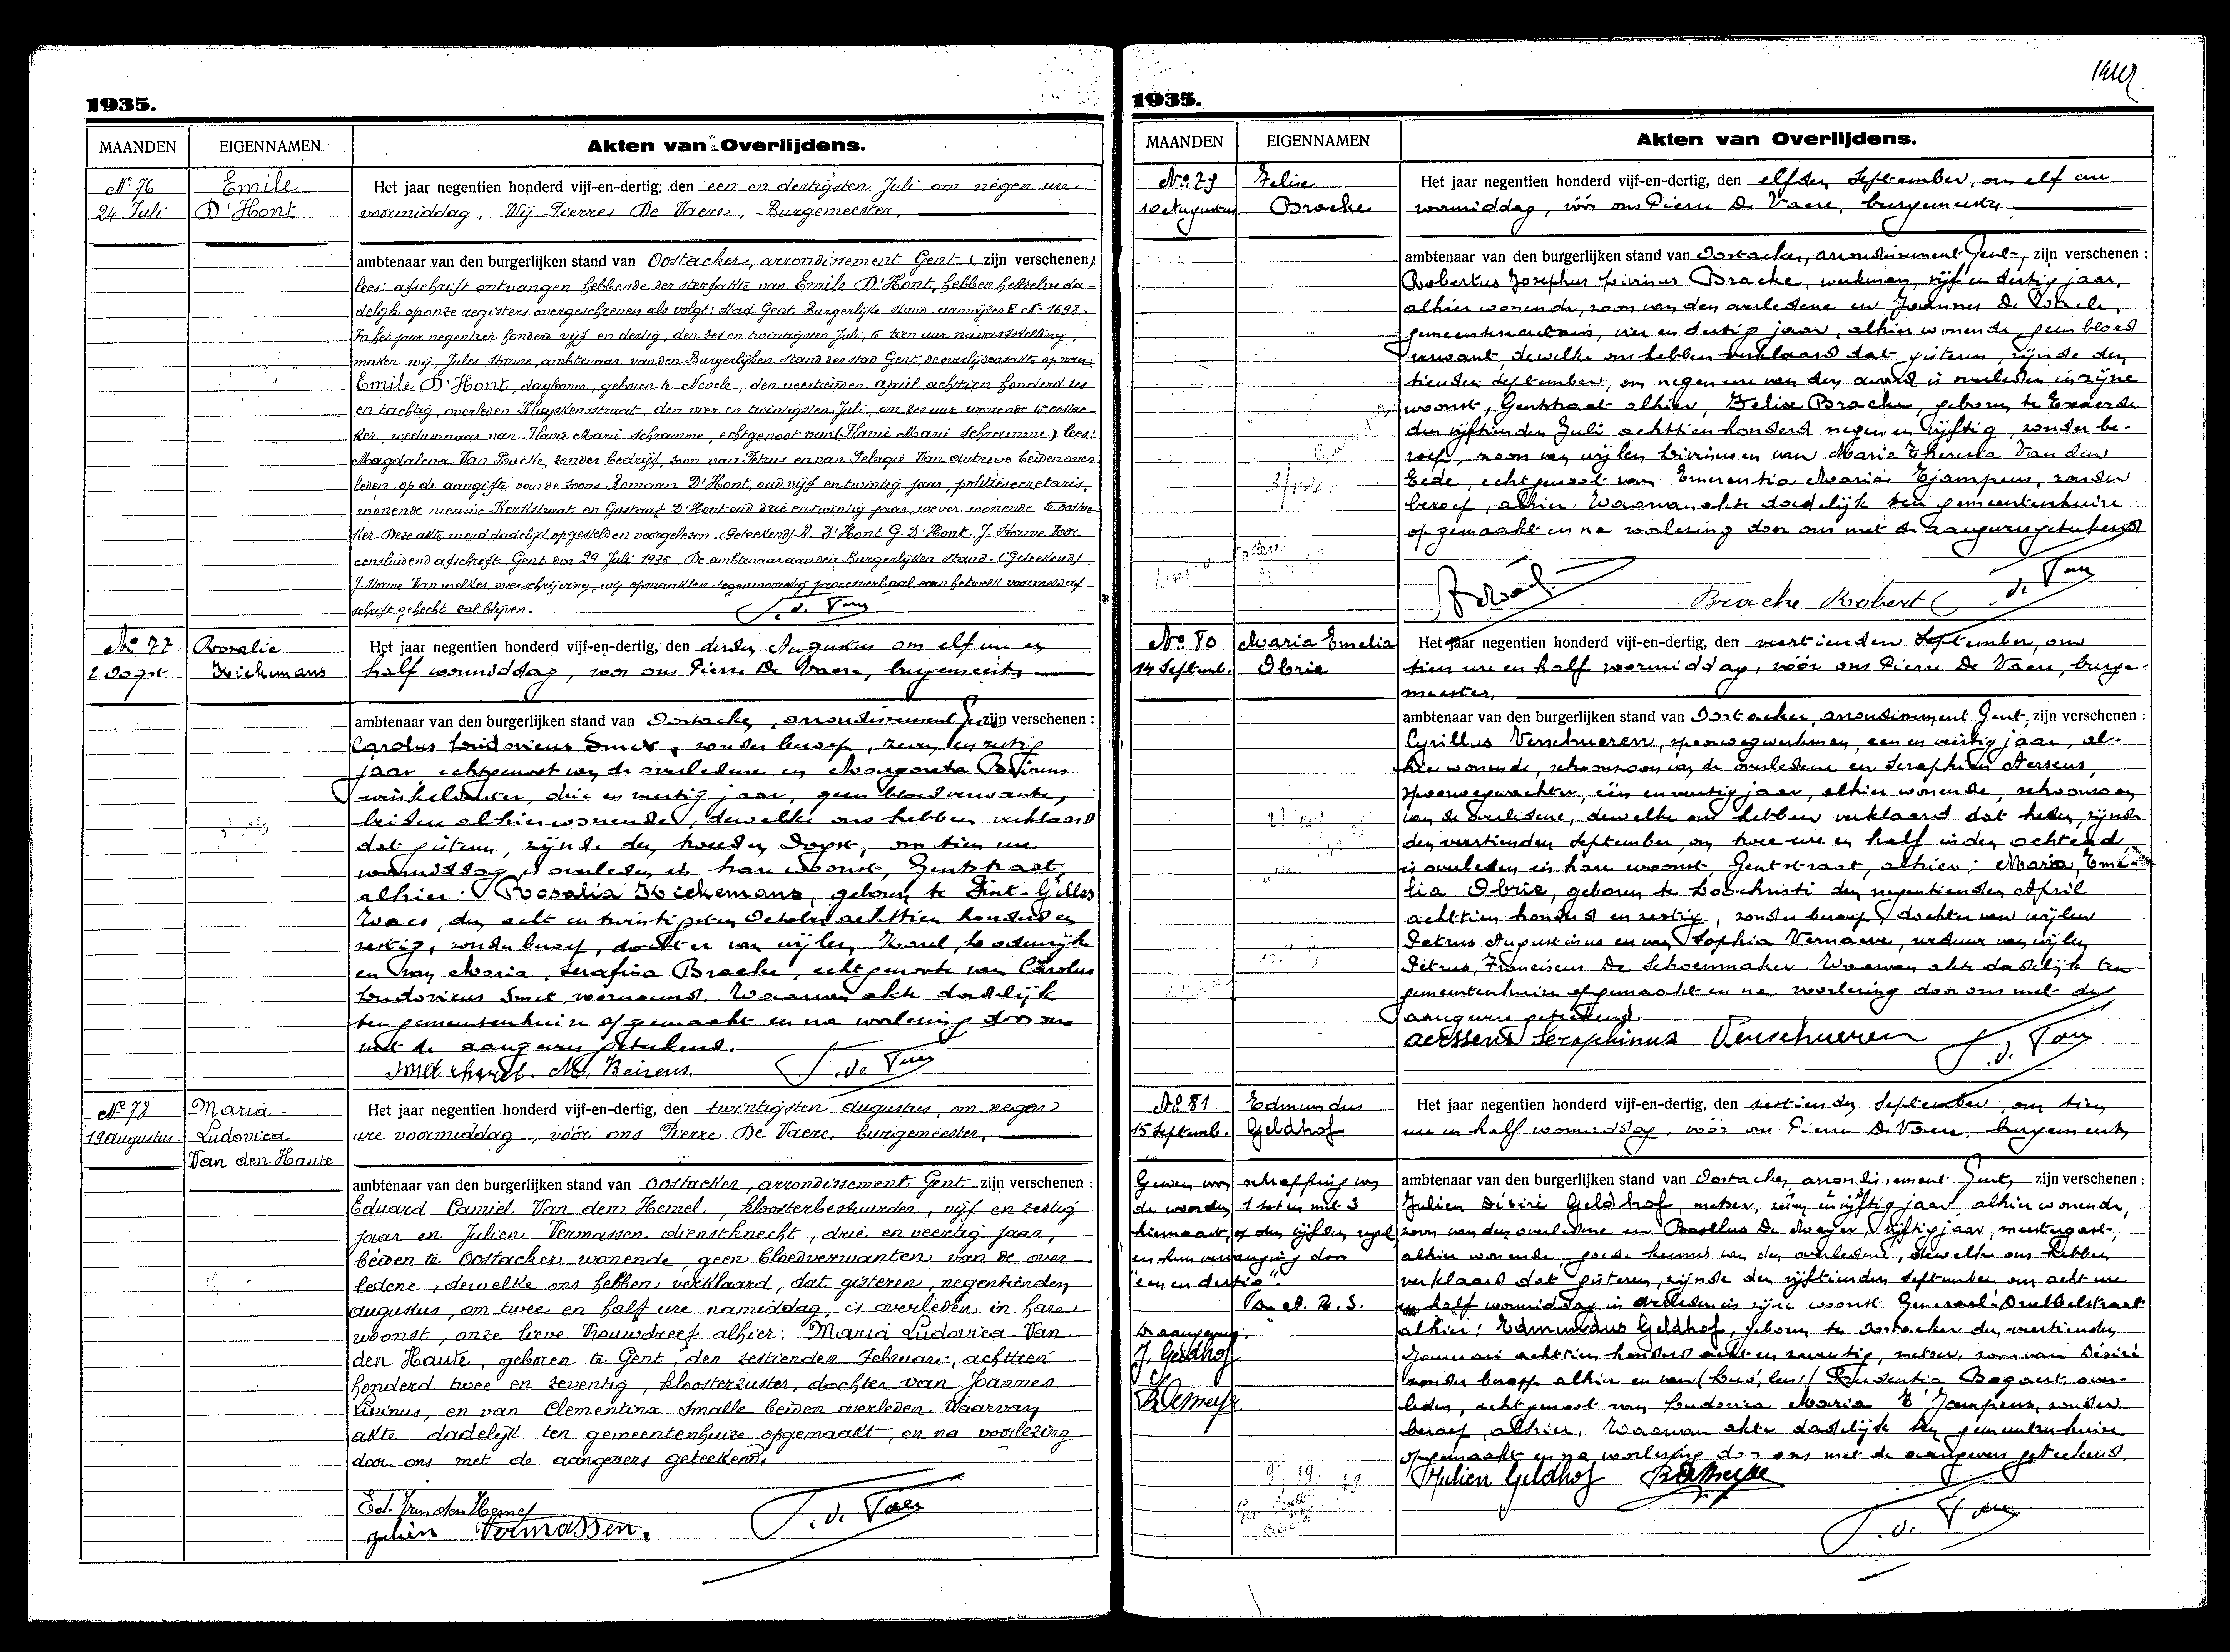 1935.
MAANDEN EIGENNAMEN. Akten van Overlijdens.
No 76
24 Juli
Emile
D'Hont
Het jaar negentien honderd vijf-en-dertig, den een en dertigsten Juli om negen ure
voormiddag, Wij Pierre De Vaere, Burgemeester,
ambtenaar van den burgerlijken stand van Oostacker, arrondissement Gent (zijn verschenen)
lees: afschrift ontvangen hebbende der sterfakte van Emile D'Hont, hebben hetzelve da-
delijk op onze registers overgeschreven als volgt: Stad Gent Burgerlijke Stand aanwijzer E No 1698.
In het jaar negentien honderd vijf en dertig, den zes en twintigsten Juli, te tien uur na vaststelling
maken wij, Jules Storme, ambtenaar van den Burgerlijken Stand der stad Gent, de overlijdensakte op van:
Emile D'Hont, daglooner, geboren te Nevele, den veertienden april achttien honderd zes
en tachtig, overleden Kluyskensstraat, den vier en twintigsten Juli, om zes uur wonende te oostac-
ker, weduwnaar van Flavie Marie Schramme, echtgenoot van (Flavie Marie Schramme) lees:
Magdalena Van Poucke, zonder bedrijf, zoon van Petrus en van Pelagie Van Autreve beiden over
leden, op de aangifte van de zoons Romaan D'Hont, oud vijf en twintig jaar, politiesecretaris,
wonende nieuwe Kerkstraat en Gustaaf D'Hont oud drie en twintig jaar, wever, wonende te oostac-
ker. Deze akte werd dadelijk opgesteld en voorgelezen (Geteekend) R. D'Hont G. D'Hont. J. Storme Voor
eensluidend afschrift. Gent den 29 Juli 1935. De ambtenaar van den Burgerlijken Stand. (Geteekend)
J. Storme. Van welker overschrijving, wij opmaakten tegenwoordig procesverbaal aan hetwelk voormeld af
schrift gehecht zal blijven.
No 77.
2 Oogst
Rosalie
Kickemans
Het jaar negentien honderd vijf-en-dertig, den derden Augustus om elf ure en
half voormiddag, voor ons Pierre De Vaere, burgemeester
ambtenaar van den burgerlijken stand van Oostacker, arrondissement Gent zijn verschenen :
Carolus Ludovicus Smet, zonder beroep, zeven en zestig
jaar, echtgenoot van de overledene en Margareta Beirens
winkelierster, drie en veertig jaar, geen bloedverwante,
beiden alhier wonende, dewelke ons hebben verklaard
dat gisteren, zijnde den tweeden Oogst, om tien ure
voormiddag is overleden in hare woonst, Gentstraat,
alhier: Rosalia Kickemans, geboren te Sint-Gilles
Waes, den acht en twintigsten October achttien honderd en
zestig, zonder beroep, dochter van wijlen Karel Lodewijk
en van Maria Serafina Bracke, echtgenoote van Carolus
Ludovicus Smet, voornoemd. Waarvan akte dadelijk
ten gemeentenhuize opgemaakt en na voorlezing door ons
met de aangevers geteekend.
Smet Karel. M. Beirens.
No 78
19 augustus.
Maria
Ludovica
Van den Haute
Het jaar negentien honderd vijf-en-dertig, den twintigsten augustus, om negen
ure voormiddag, vóór ons Pierre De Vaere, burgemeester,
ambtenaar van den burgerlijken stand van Oostacker, arrondissement Gent zijn verschenen :
Eduard Camiel Van den Hemel, kloosterbestuurder, vijf en zestig
jaar en Julien Vermassen dienstknecht, drie en veertig jaar,
beiden te Oostacker wonende, geen bloedverwanten van de over
ledene, dewelke ons hebben verklaard, dat gisteren, negentienden
augustus, om twee en half ure namiddag, is overleden in hare
woonst, onze lieve Vrouwdreef alhier: Maria Ludovica Van
den Haute, geboren te Gent, den zestienden Februari, achttien
honderd twee en zeventig, kloosterzuster, dochter van Joannes
Livinus, en van Clementina Smalle beiden overleden. Waarvan
akte dadelijk ten gemeentenhuize opgemaakt, en na voorlezing
door ons met de aangevers geteekend.
Ed. Van den Hemel
Julien Vermassen.
1935.
MAANDEN EIGENNAMEN Akten van Overlijdens.
No 79
10 Augustus
Felix
Bracke
Het jaar negentien honderd vijf-en-dertig, den elfden September, om elf ure
voormiddag, vóór ons Pierre De Vaere, burgemeester
ambtenaar van den burgerlijken stand van Oostacker, arrondissement Gent, zijn verschenen :
Robertus Josephus Livinus Bracke, werkman, vijf en dertig jaar,
alhier wonende, zoon van den overledene en Joannes De Waele,
gemeentesecretaris, vier en dertig jaar, alhier wonende, geen bloed
verwant, dewelke ons hebben verklaard dat gisteren, zijnde den
tienden September, om negen ure van den avond is overleden in zijne
woonst, Gentstraat alhier, Felix Bracke, geboren te Exaerde
den vijftienden Juli achttien honderd negen en vijftig, zonder be-
roep, zoon van wijlen Livinus en van Maria Theresia Van den
Eede, echtgenoot van Emerentia Maria Tjampens, zonder
beroep, alhier. Waarvan akte dadelijk ten gemeentenhuize
opgemaakt en na voorlezing door ons met de aangevers geteekend
Bracke Robert
No 80
14 Septemb.
Maria Emelia
Obrie
Het jaar negentien honderd vijf-en-dertig, den veertienden September, om
tien ure en half voormiddag, vóór ons Pierre De Vaere, burge-
meester,
ambtenaar van den burgerlijken stand van Oostacker, arrondissement Gent, zijn verschenen :
Cyrillus Verschueren, spoorwegwerkman, een en veertig jaar, al-
hier wonende, schoonzoon van de overledene en Seraphin Aerssens,
spoorwegwachter, één en veertig jaar, alhier wonende, schoonzoon
van de overledene, dewelke ons hebben verklaard dat heden, zijnde
den veertienden September, om twee ure en half in den ochtend
is overleden in hare woonst, Gentstraat, alhier: Maria, Eme-
lia Obrie, geboren te Loochristi den negentienden April
achttien honderd en zestig, zonder beroep, dochter van wijlen
Petrus Augustinus en van Sophia Vernaeve, weduwe van wijlen
Petrus, Franciscus De Schoenmaker. Waarvan akte dadelijk ten
gemeentenhuize opgemaakt en na voorlezing door ons met de
aangevers geteekend.
aerssens Seraphinus Verschueren
No 81
15 Septemb.
Edmundus
Geldhof
Het jaar negentien honderd vijf-en-dertig, den zestienden September, om tien
ure en half voormiddag, vóór ons Pierre De Vaere, burgemeester
ambtenaar van den burgerlijken stand van Oostacker, arrondissement Gent, zijn verschenen :
Julien Désiré Geldhof, metser, jaar, alhier wonende,
zoon van den overledene en De Meyer, vijftig jaar, meestergast,
alhier wonende, goede kennis van den overledene, dewelke ons hebben
verklaard dat gisteren, zijnde den vijftienden September om acht ure
en half voormiddag is overleden in zijne woonst Generaal Drubbelstraat
alhier: Edmundus Geldhof, geboren te Oostacker den veertienden
Januari achttien honderd acht en zeventig, metser, zoon van Désiré
zonder beroep alhier en van Prudentia Bogaert, over-
leden, echtgenoot van Ludovica Maria T'Jampens, zonder
beroep, alhier. Waarvan akte dadelijk ten gemeentenhuize
opgemaakt en na voorlezing door ons met de aangevers geteekend.
Julien Geldhof
schraffing van
de woorden 1 tot en met 3
hiernaast, op den vijfden regel
en hun vervanging door
"een en dertig".
De aangevers.
J. Geldhof